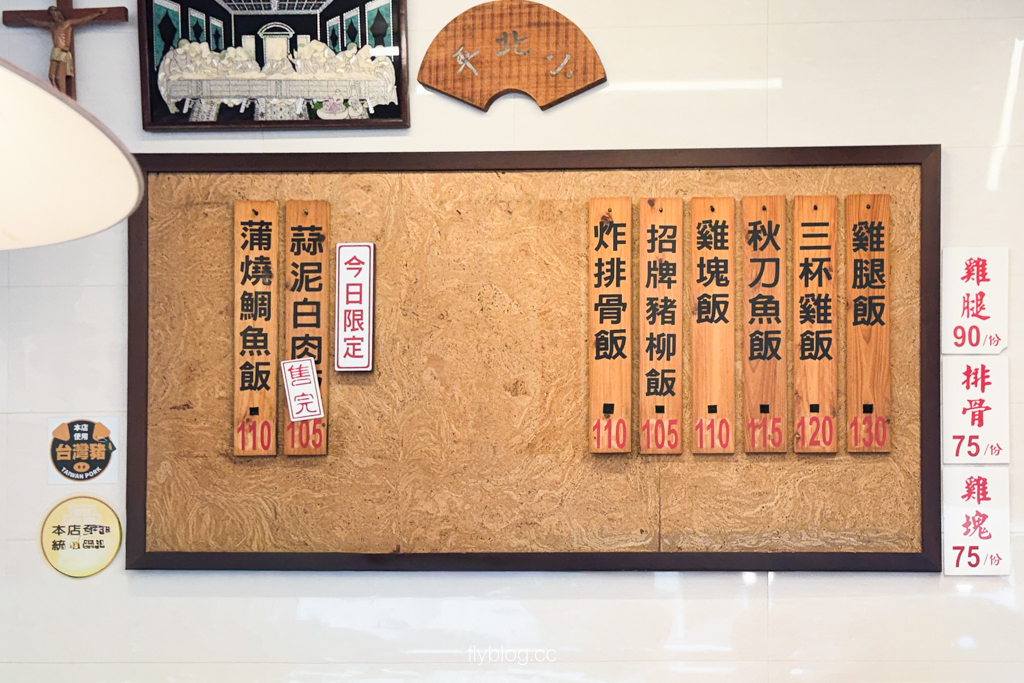 雞腿飯
130
三杯雞飯
120
秋刀魚飯
115
雞塊飯
110
招牌豬柳飯
105
炸排骨飯
110
今日限定
蒜泥白肉
售完
105
蒲燒鯛魚飯
110
雞腿
90/份
排骨
75/份
雞塊
75/份
本店
使用
台灣豬
TAIWAN PORK
本店
統
flyblog.cc